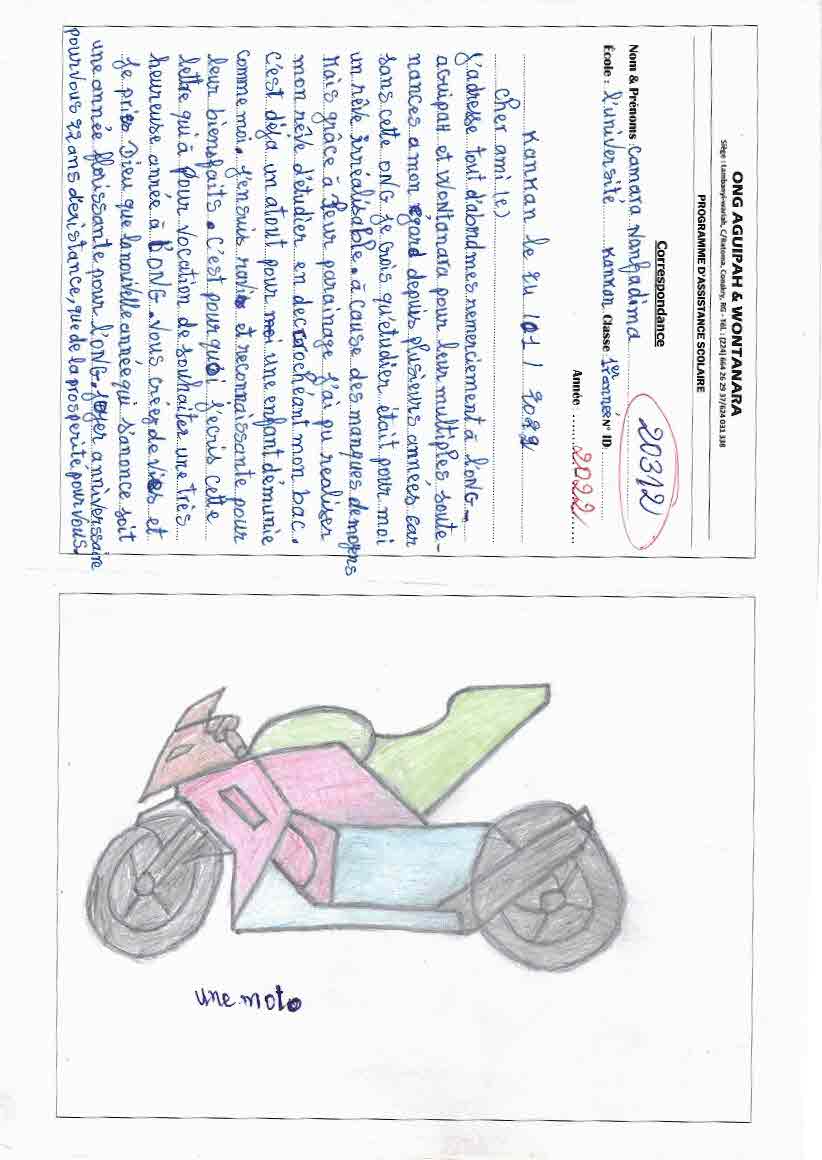 ONG AGUIPAH & WONTANARA
Siège : Lambanyi-wariah, C/Ratoma, Conakry, RG - Tél : (224) 664 26 29 37/624 031 338
PROGRAMME D'ASSISTANCE SCOLAIRE
Correspondance
20312
Nom & Prénoms Camara Nanfadima
École : l'université Kankan Classe 1er année N° ID
Année : 2022
Kankan le 24 / 01 / 2022
Cher ami (e)
J'adresse tout d'abord mes remerciement à l'ONG
aguipah et wontanara pour leur multiples soute-
nances a mon égard depuis plusieurs années car
sans cette ONG je crois qu'étudier était pour moi
un rêve irréalisable. à cause des manques de moyens
Mais grâce à leur parainage j'ai pu realiser
mon rêve d'étudier en decrochéant mon bac.
C'est déjà un atout pour moi une enfant démunie
comme moi. J'en suis ravis et reconnaissante pour
leur biensfaits. C'est pourquoi j'ecris cette
lettre qui à pour vocation de souhaiter une très
heureuse année à l'ONG. Vous creez de vies et
Je pries Dieu que la nouvelle année qui s'anonce soit
une année florissante pour l'ONG. Joyer anniverssaire
pour vous 22 ans d'existance, que de la prosperite pour vous.
une moto